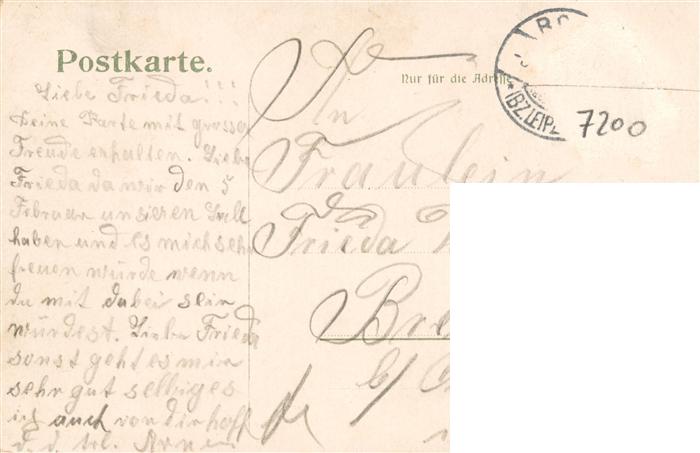 Postkarte.
Nur für die Adresse
RO
*(BZ.LEIPZ
7200
Liebe Frieda!!!
Deine Karte mit grosser
Freude erhalten. Liebe
Frieda da wir den 5
Februar unsieren Ball
haben und es mich sehr
freuen würde wenn
du mit dabei sein
würdest. Liebe Frieda
sonst geht es mir
sehr gut selbiges
ich auch von dir hoff
d. d.
An
Fräulein
Frieda
Bre
b/